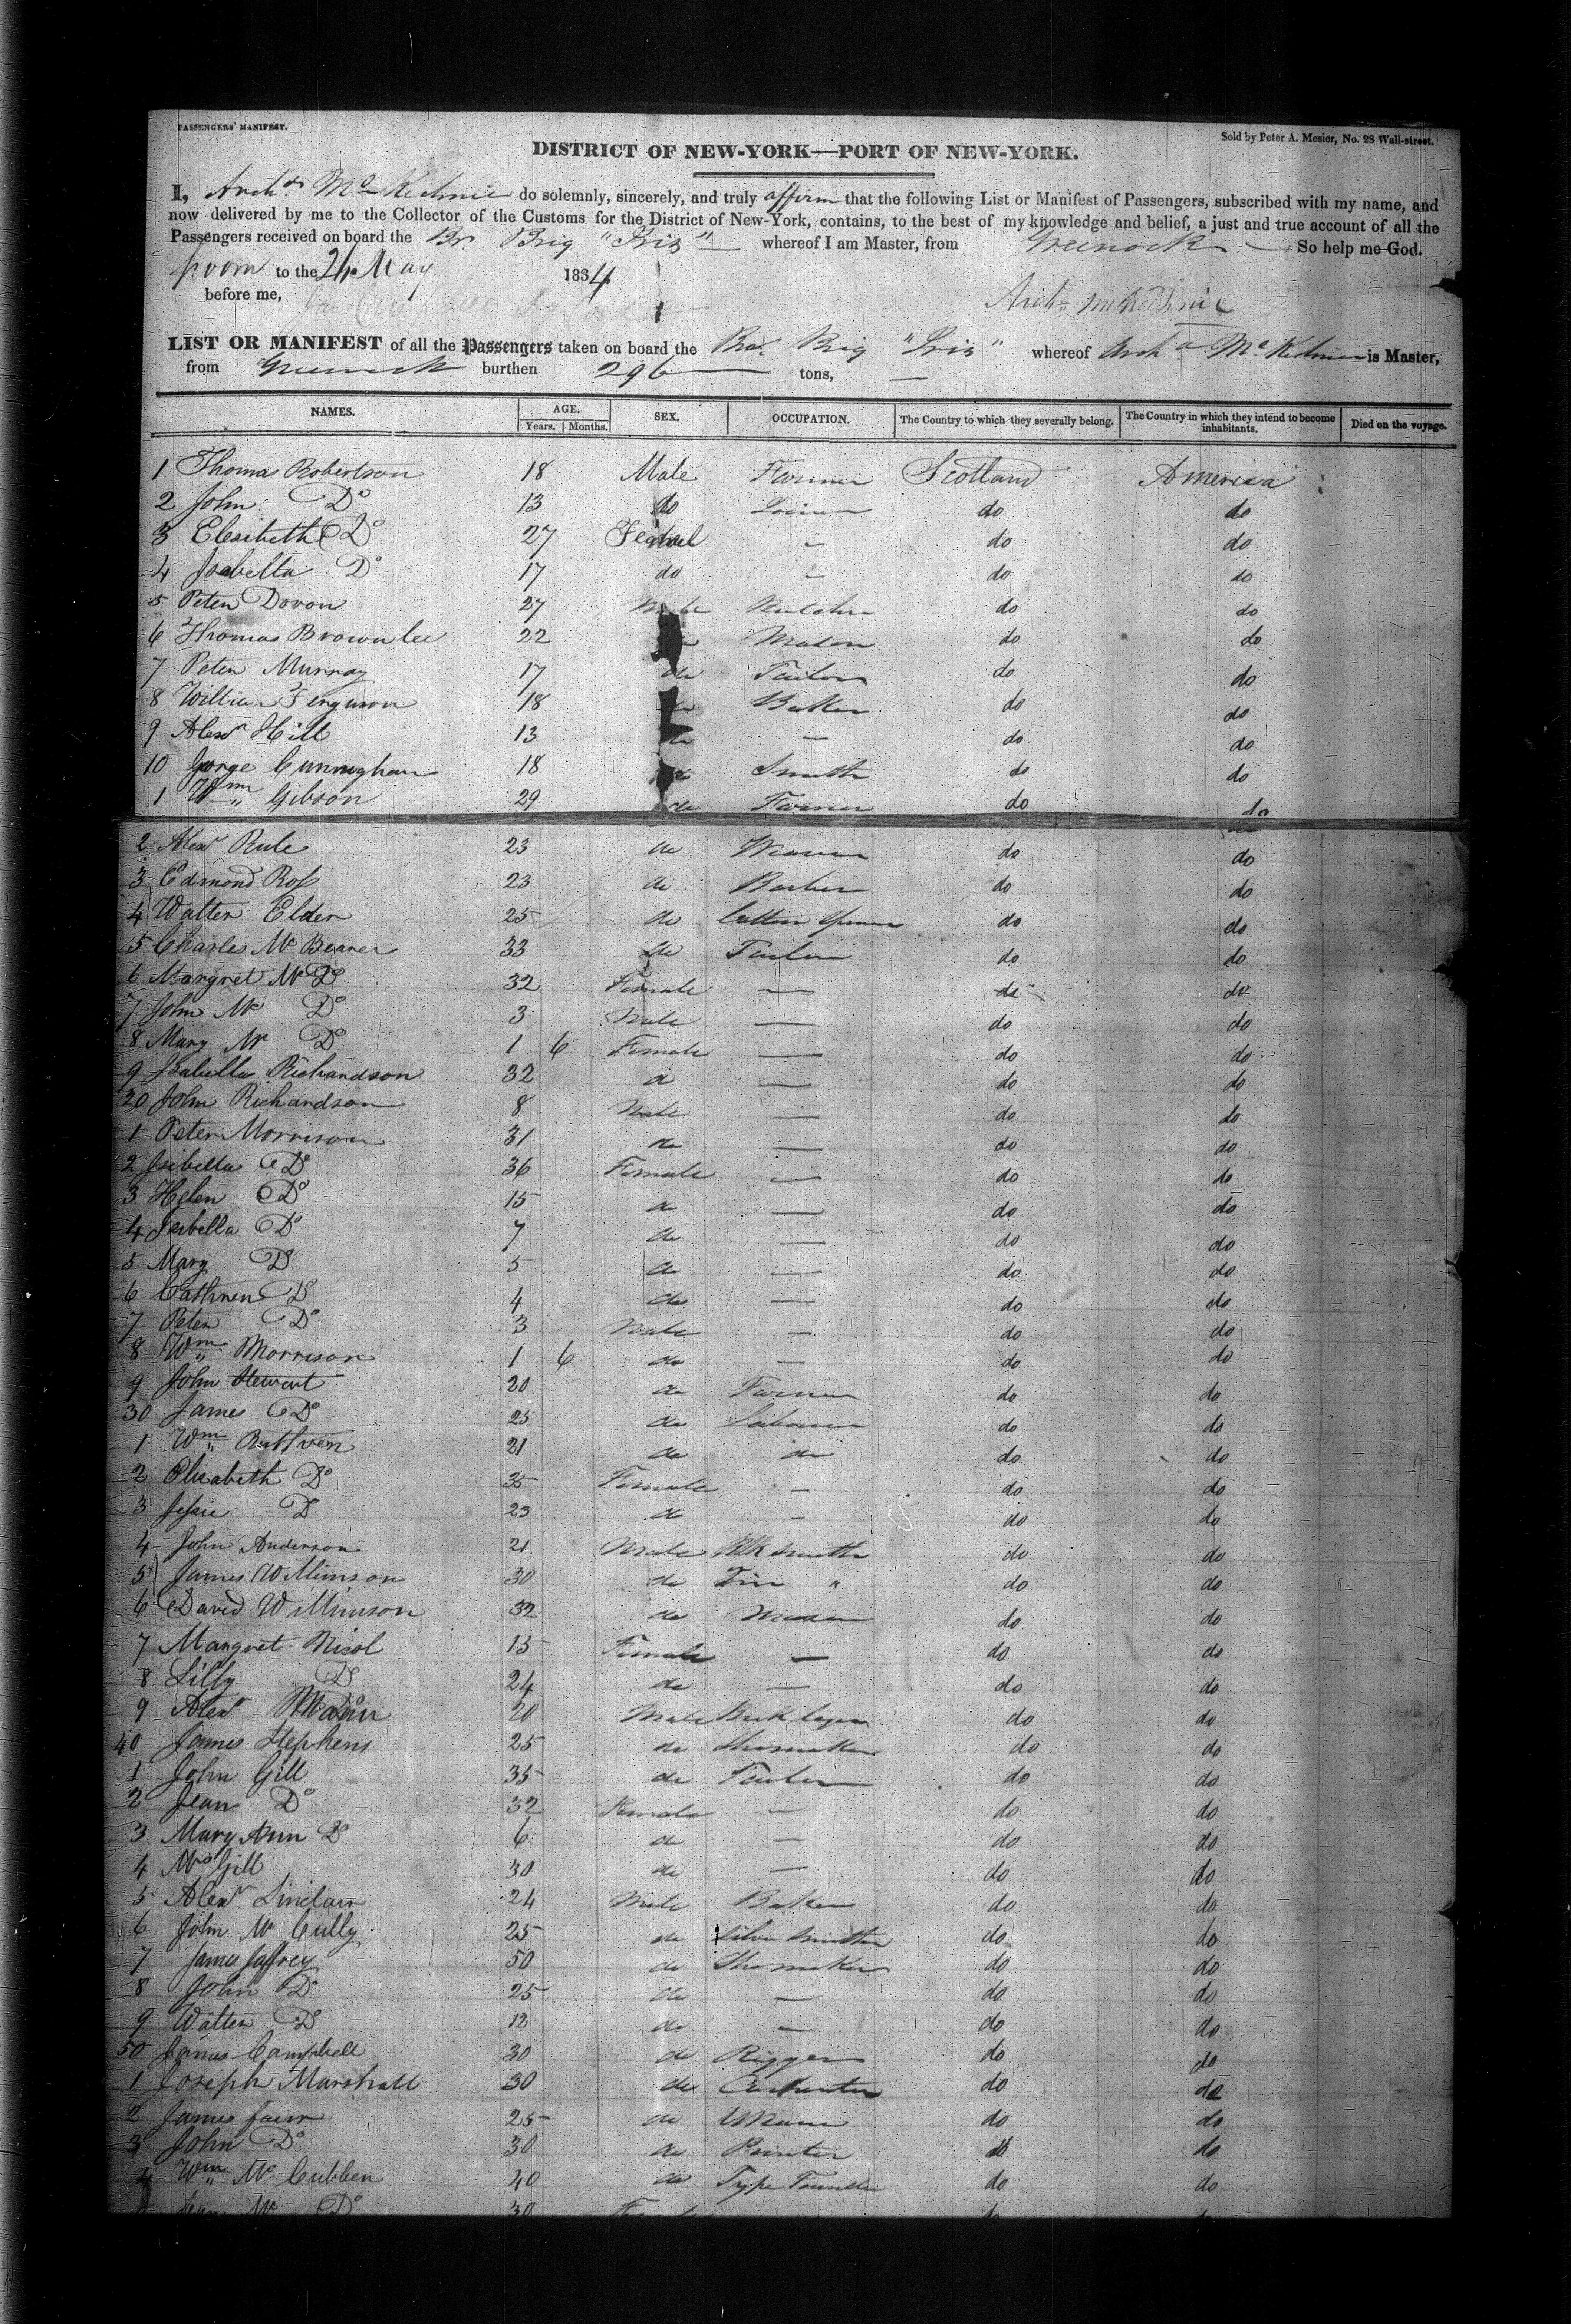 PASSENGERS' MANIFEST.
Sold by Peter A. Mesier, No. 28 Wall-street.
DISTRICT OF NEW-YORK—PORT OF NEW-YORK.
I, Archd McKechnie do solemnly, sincerely, and truly affirm that the following List or Manifest of Passengers, subscribed with my name, and
now delivered by me to the Collector of the Customs for the District of New-York, contains, to the best of my knowledge and belief, a just and true account of all the
Passengers received on board the Br. Brig "Iris" whereof I am Master, from Greenock So help me God.
to the 24 May 1834
before me,
Archd McKechnie
LIST OR MANIFEST of all the Passengers taken on board the Br. Brig "Iris" whereof Archd McKechnie is Master,
from Greenock burthen 296 tons,
NAMES. AGE. SEX. OCCUPATION. The Country to which they severally belong. The Country in which they intend to become inhabitants. Died on the voyage.
Years. Months.
1 Thomas Robertson 18 Male Farmer Scotland America
2 John Do 13 do do do
3 Elesibeth Do 27 do do
4 Isabella Do 17 do — do do
5 Peter Dovon 27 Male Butcher do do
6 Thomas Brownlee 22 Mason do do
7 Peter Murray 17 do Tailor do do
8 William Ferguson 18 do Baker do do
9 Alexr Hill 13 do — do do
10 Gorge Cunningham 18 do Smith do do
1 Wm Gibson 29 do Farmer do do
2 Alexr Rule 23 do Weaver do do
3 Edmond Ross 23 do Barber do do
4 Walter Elder 25 do Cotton Spinner do do
5 Charles Mc Beaner 33 do Tailor do do
6 Margret Mc Do 32 Female — do do
7 John Mc Do 3 Male — do do
8 Mary Mc Do 1 6 Female — do do
9 Isabella Richardson 32 do — do do
20 John Richardson 8 Male — do do
1 Peter Morrison 31 do — do do
2 Isibella Do 36 Female — do do
3 Helen Do 15 do — do do
4 Isibella Do 7 do — do do
5 Mary Do 5 do — do do
6 Cathren Do 4 do — do do
7 Peter Do 3 Male — do do
8 Wm Morrison 1 6 do — do do
9 John Stewart 20 do Farmer do do
30 James Do 25 do Labourer do do
1 Wm Ruthven 21 do do do do
2 Elisabeth Do 35 Female — do do
3 Jessie Do 23 do — do do
4 John Anderson 21 Male Blk Smith do do
5 James Willinson 30 do Tin " do do
6 David Willinson 32 do Mason do do
7 Margret Nicol 15 Female — do do
8 Lilly Do 24 do — do do
9 Alexr 20 Male Bricklayer do do
40 James Stephens 25 do Shomaker do do
1 John Gill 35 do Tailor do do
2 Jean Do 32 Female — do do
3 Mary Ann Do 6 do — do do
4 Mrs Gill 30 do — do do
5 Alexr Sinclair 24 Male Baker do do
6 John Mc Cully 25 do Silver Smith do do
7 James Jaffrey 50 do Shomaker do do
8 John Do 25 do — do do
9 Walter Do 12 do — do do
50 James Campbell 30 do Rigger do do
1 Joseph Marshall 30 do Carpenter do do
2 James 25 do do do
3 John Do 30 do Printer do do
4 Wm Mc Cubben 40 do Type Founder do do
Jean Mc Do 30